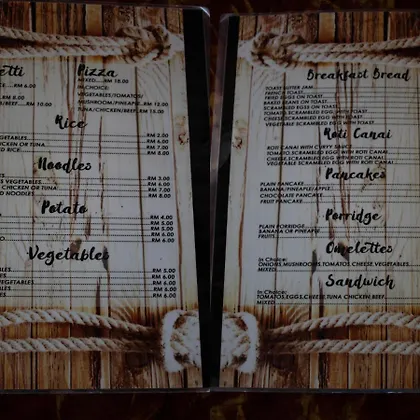 etti
RM 6.00
RM 8.00
/BEEF.....RM 10.00
Pizza
MIXED.....RM 18.00
IN CHOICE:
VEGETABLES/TOMATOS/
MUSHROOM/PINEAPLE...RM 12.00
TUNA/CHICKEN/BEEF...RM 15.00
Rice
RM 2.00
ETABLES RM 6.00
CHICKEN OR TUNA RM 7.00
ED RICE RM 8.00
Noodles
RM 3.00
S VEGETABLES RM 6.00
CHICKEN OR TUNA RM 7.00
D NOODLES RM 8.00
Potato
RM 4.00
RM 5.00
RM 5.00
RM 6.00
RM 6.00
Vegetables
RM 5.00
LES RM 5.00
LES RM 6.00
LES RM 6.00
RM 6.00
Breakfast Bread
TOAST BUTTER JAM
FRENCH TOAST
FRIED EGGS ON TOAST
BAKED BEANS ON TOAST
SCRAMBLED EGGS ON TOAST
TOMATO SCRAMBLED EGG WITH TOAST
CHEESE SCRAMBLED EGG WITH TOAST
VEGETABLE SCRAMBLED EGG WITH TOAST
Roti Canai
ROTI CANAI WITH CURRY SAUCE
TOMATO SCRAMBLED EGG WITH ROTI CANAI
CHEESE SCRAMBLED EGG WITH ROTI CANAI
VEGETABLE SCRAMBLED EGG WITH ROTI CANAI
Pancakes
PLAIN PANCAKE
BANANA/PINEAPLE/APPLE
CHOCOLATE PANCAKE
FRUIT PANCAKE
Porridge
PLAIN PORRIDGE
BANANA OR PINEAPLE
FRUITS
Omelettes
In Choice:
ONIONS,MUSHROOMS,TOMATOS,CHEESE,VEGETABLES
MIXED
Sandwich
In Choice:
TOMATOS,EGGS,CHEESE,TUNA,CHICKEN,BEEF
MIXED